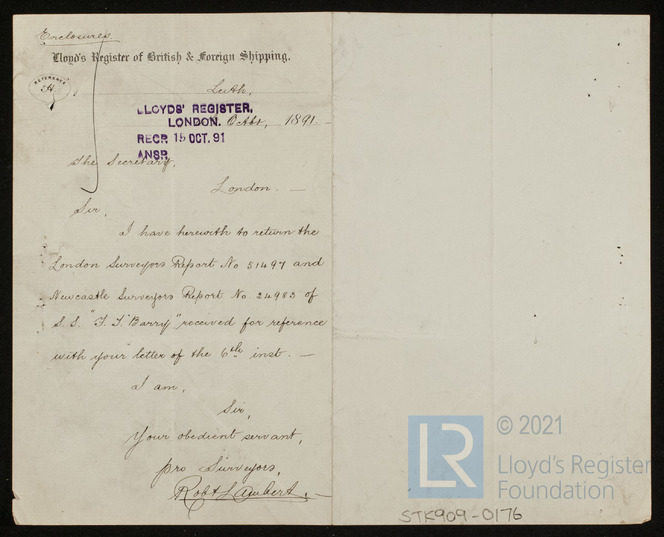 Enclosures
Lloyd's Register of British & Foreign Shipping.
REFERENCE
Leith,
LLOYDS' REGISTER,
LONDON. Octbr, 1891.
RECD 15 OCT. 91
ANSR
The Secretary,
London. —
Sir,
I have herewith to return the
London Surveyors Report No 51497 and
Newcastle Surveyors Report No 24983 of
S.S. "F. T. Barry" received for reference
with your letter of the 6th inst. —
I am,
Sir,
Your obedient servant,
pro Surveyors,
Robt Lambert. —
LR
© 2021
Lloyd's Register
Foundation
STK909-0176